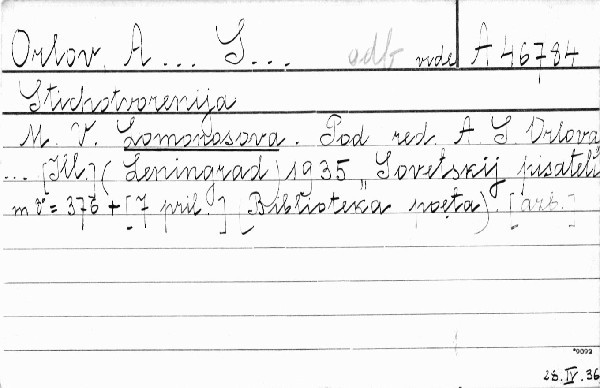 Orlov, A... S... odb vide A 46784
Stichotvorenija
M. V. Lomonosova. Pod red. A S. Orlova
... [Ill.] (Leningrad) 1935 "Sovetskij pisatel"
m 8° = 376 + [7 pril.] (Biblioteka poeta). [arb.]
*9092
28. IV. 36